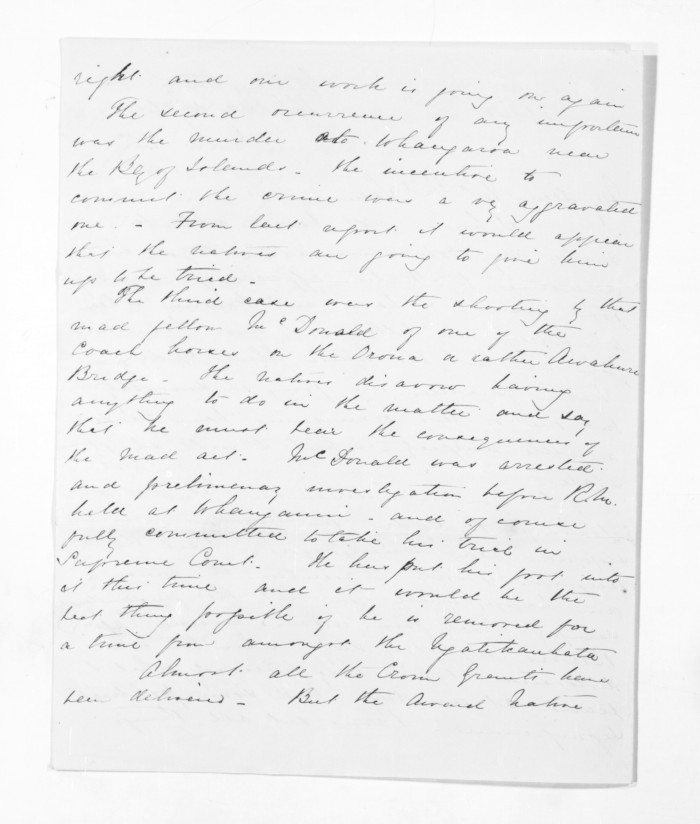 right and our work is going on again
The second occurrence of any importance
was the murder at Whangaroa near
the Bay of Islands - the incentive to
commit the crime was a vy aggravated
one. - From last report it would appear
that the natives are going to give him
up to be tried -
The third case was the shooting by that
mad fellow McDonald of one of the
Coach horses on the Oroua or rather Awahuri
Bridge - the natives disavow having
anything to do in the matter and say
that he must bear the consequences of
the mad act - McDonald was arrested
and preliminary investigation before R.M.
held at Whanganui - and of course
fully committed to take his trial in
Supreme Court. - He has put his foot into
it this time and it would be the
best thing possible if he is removed for
a time from amongst the Ngatikauhata
Almost all the Crown Grants have
been delivered - But the Award Native